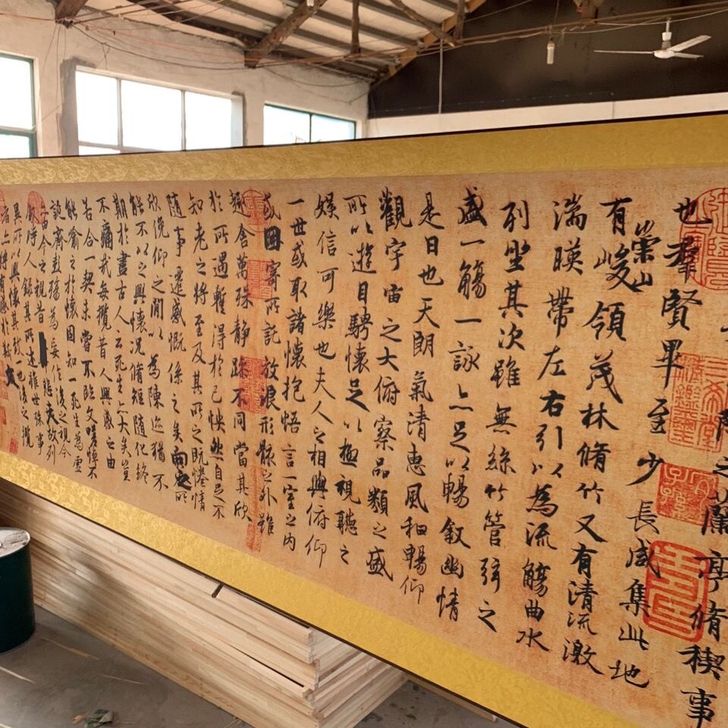 蘭亭脩稧事
也羣賢畢至少長咸集此地
有崇山峻領茂林脩竹又有清流激
湍暎帶左右引以為流觴曲水
列坐其次雖無絲竹管弦之
盛一觴一詠亦足以暢叙幽情
是日也天朗氣清惠風和暢仰
觀宇宙之大俯察品類之盛
所以遊目騁懷足以極視聽之
娛信可樂也夫人之相與俯仰
一世或取諸懷抱悟言一室之內
或因寄所託放浪形骸之外雖
趣舍萬殊靜躁不同當其欣
於所遇暫得於己怏然自足不
知老之將至及其所之既惓情
隨事遷感慨係之矣向之所
欣俛仰之間以為陳迹猶不
能不以之興懷況脩短隨化終
期於盡古人云死生亦大矣豈
不痛哉每攬昔人興感之由
若合一契未嘗不臨文嗟悼不
能喻之於懷固知一死生為虛
誕齊彭殤為妄作後之視今
由今之視昔悲夫故列
叙時人錄其所述雖世殊事
異所以興懷其致一也後之攬